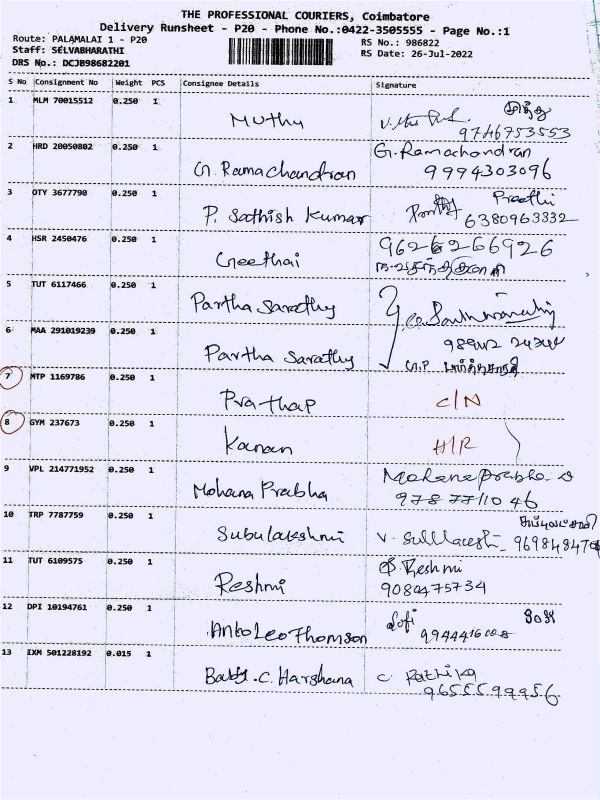 THE PROFESSIONAL COURIERS, Coimbatore
Delivery Runsheet - P20 - Phone No.:0422-3505555 - Page No.:1
Route: PALAMALAI 1 - P20 RS No.: 986822
Staff: SELVABHARATHI RS Date: 26-Jul-2022
DRS No.: DCJB98682201
S No Consignment No Weight PCS Consignee Details Signature
1 MLM 70015512 0.250 1 Muthu முத்து
9746753553
2 HRD 20050802 0.250 1 G. Ramachandran G. Ramachandran
9994303096
3 OTY 3677790 0.250 1 P. Sathish Kumar Preethi
6380963332
4 HSR 2450476 0.250 1 Geethai 9626266926
5 TUT 6117466 0.250 1 Partha Sarathy
6 MAA 291019239 0.250 1 Partha Sarathy
7 MTP 1169786 0.250 1 Prathap C/N
8 GYM 237673 0.250 1 Kanan H/R
9 VPL 214771952 0.250 1 Mohana Prabha Mohana Prabha
978 77110 46
10 TRP 7787759 0.250 1 Subulakshmi
11 TUT 6109575 0.250 1 Reshmi Reshmi
9080475734
12 DPI 10194761 0.250 1 Anto Leo Thomson Sofi
13 IXM 501228192 0.015 1 Baby. C. Harshana C. Rathika
9655599956